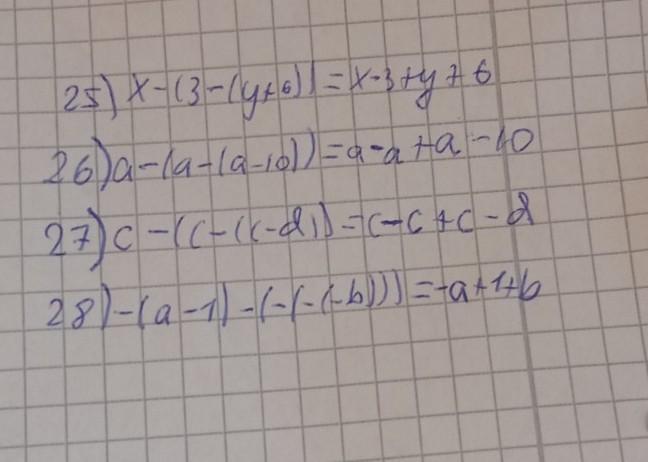 25) x-(3-(y+6))=x-3+y+6
26) a-(a-(a-10))=a-a+a-10
27) c-(c-(c-d))=c-c+c-d
28) -(a-1)-(-(-(-b)))=-a+1+b